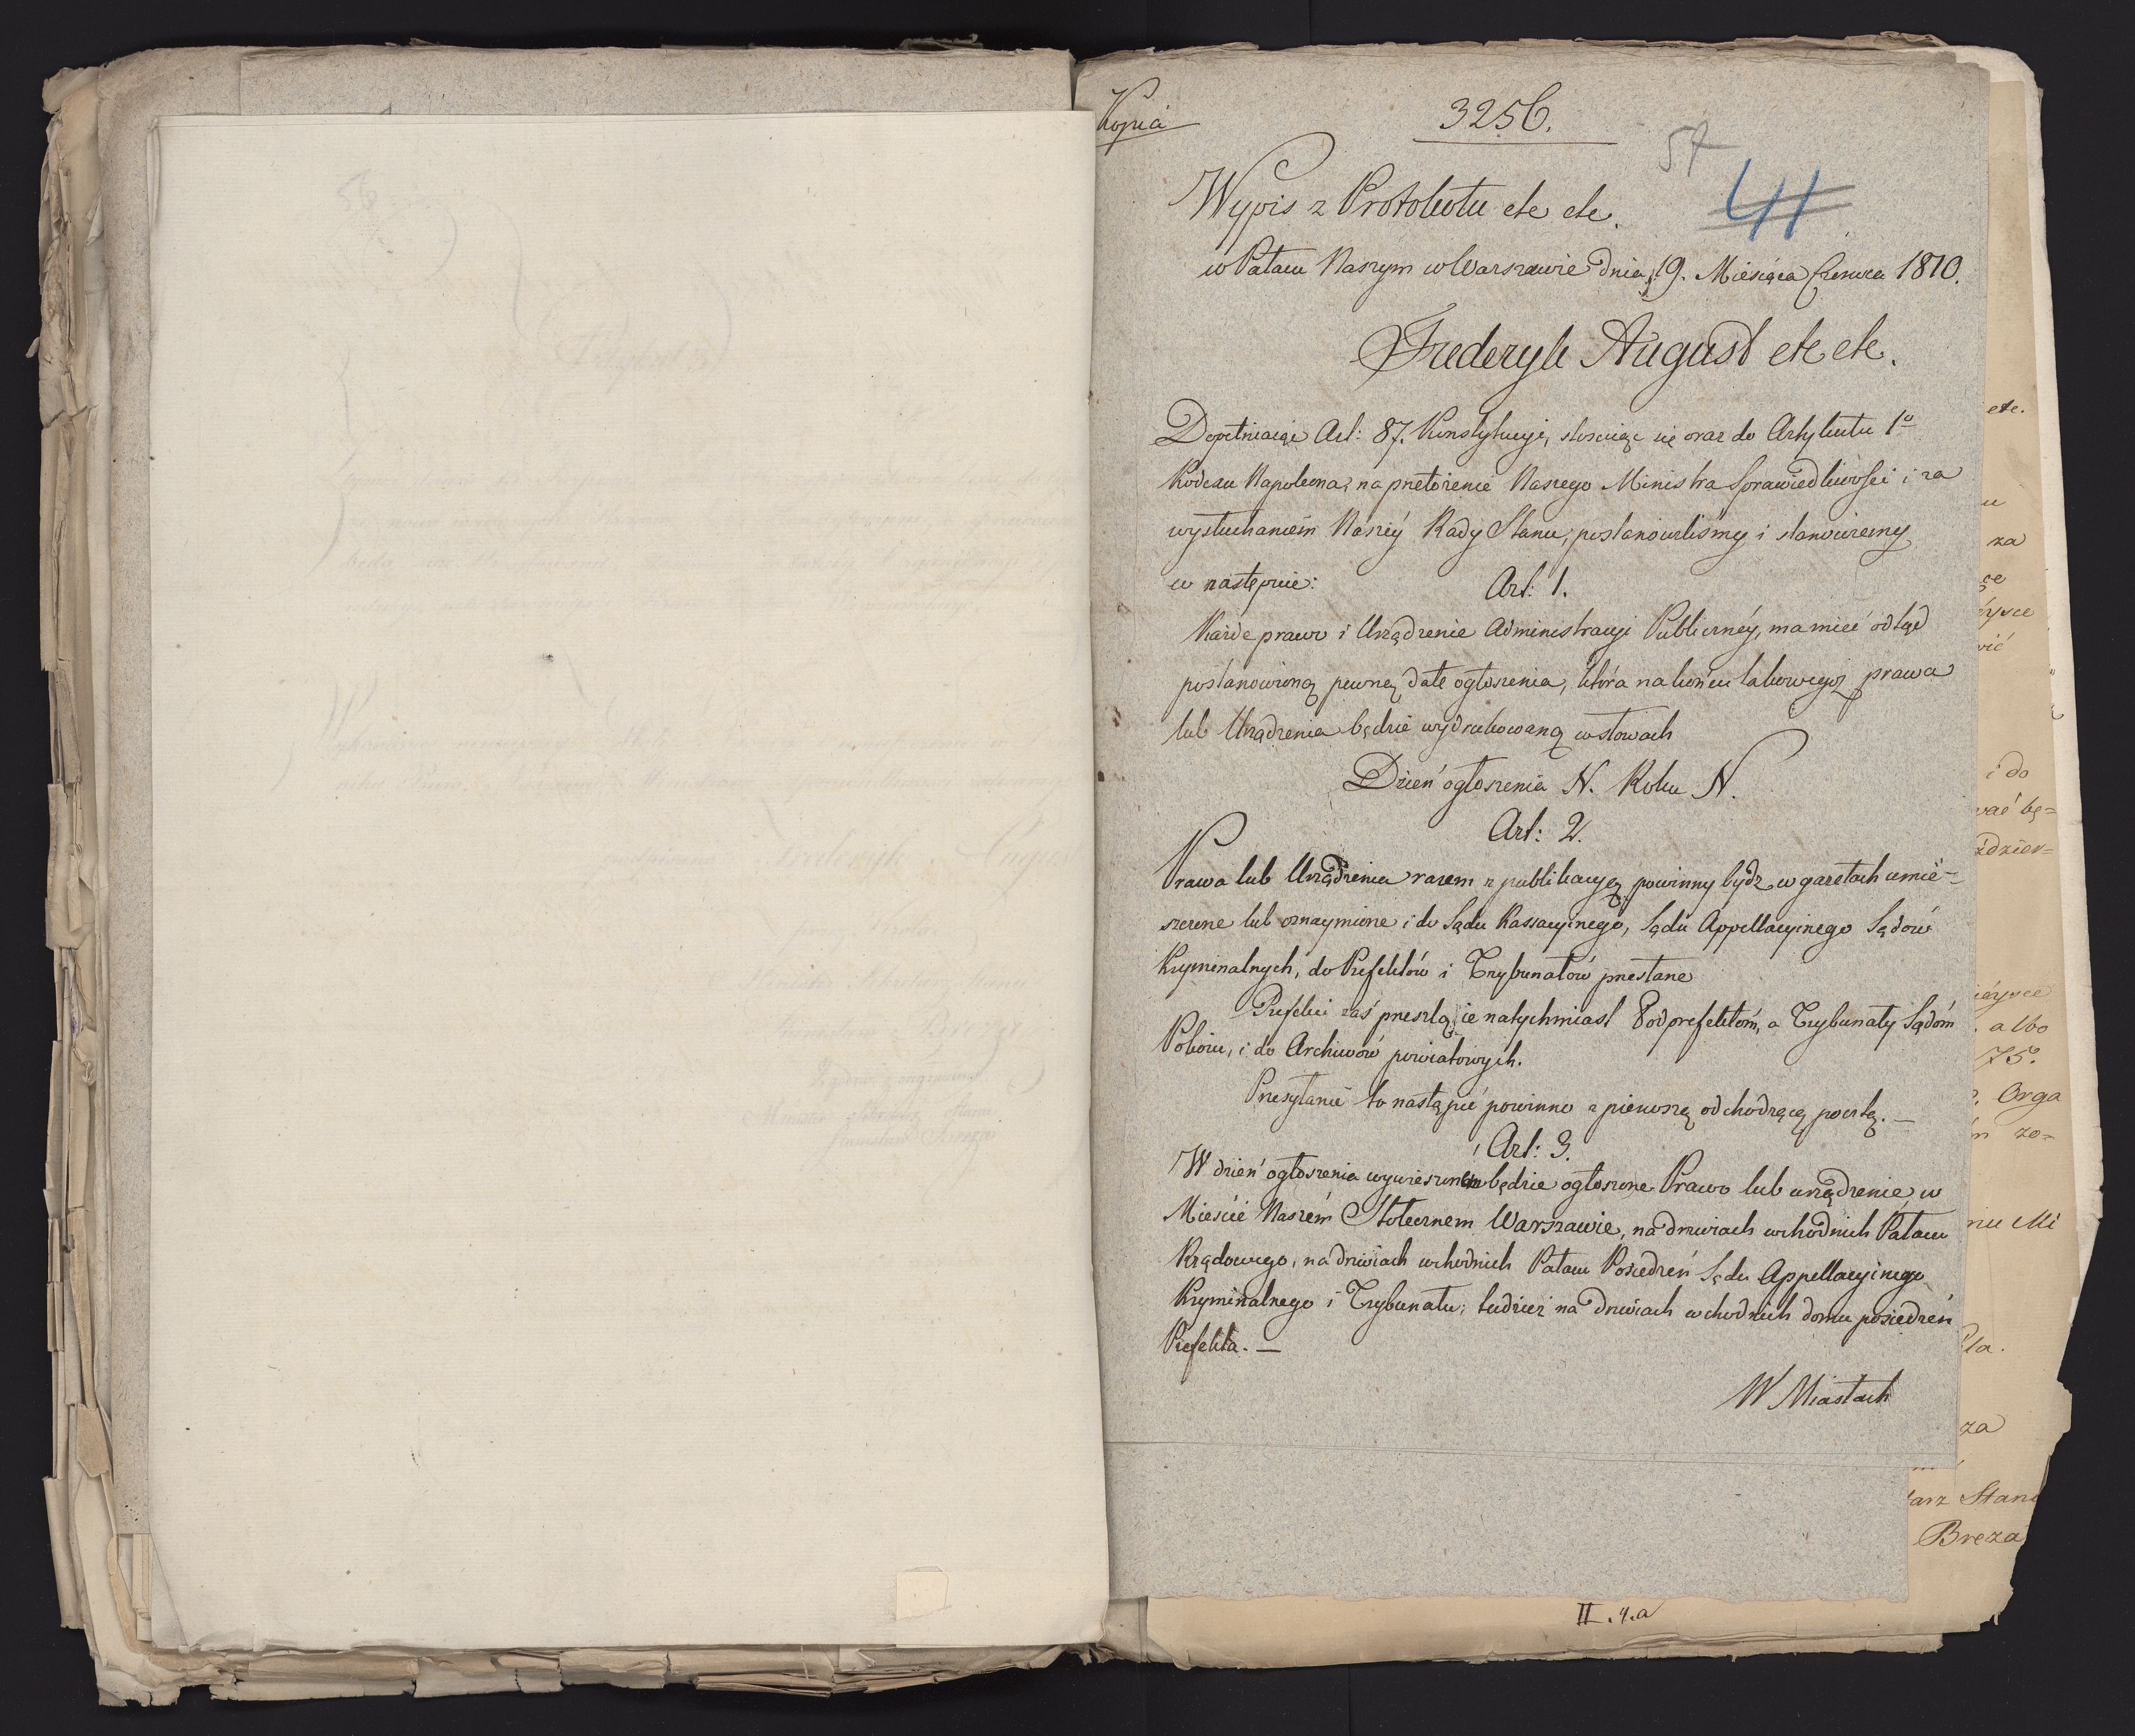 Kopia
3256.
57
44
Wypis z Protokułu etc etc.
w Pałacu Naszym w Warszawie Dnia 19. Miesiąca Czerwca 1810.
Fryderyk August etc etc.
Dopełniaiąc Art: 87. Konstytucyi, stosuiąc się oraz do Artykułu 1o
Kodexu Napoleona, na przełożenie Naszego Ministra Sprawiedliwości i za
wysłuchaniem Naszéy Rady Stanu, postanowiliśmy i stanowiemy
co następuie:
Art: 1.
Każde prawo i Urządzenie Administracyi Publicznéy, ma mieć odtąd
postanowioną pewną datę ogłoszenia, która na końcu takowego prawa
lub Urządzenia będzie wydrukowaną w słowach
Dzień ogłoszenia N. Roku N.
Art: 2.
Prawa lub Urządzenia razem z publikacyą powinny bydz w gazetach umie-
szczone lub oznaymione i do Sądu Kassacyinego, Sądu Appellacyinego Sądów
Kryminalnych, do Prefektów i Trybunałów przesłane
Prefekci zaś prześlą ie natychmiast Podprefektom, a Trybunały Sądóm
Pokoiu, i do Archiwów powiatowych.
Przesyłanie to nastąpić powinno z pierwszą odchodzącą pocztą. —
Art: 3.
W dzień ogłoszenia będzie ogłoszone Prawo lub urządzenie w
Mieście Naszém Stołecznem Warszawie, na drzwiach wchodnich Pałacu
Rządowego, na drzwiach wchodnich Pałacu Posiedzeń Sądu Appellacyinego
Kryminalnego i Trybunału; tudzież na drzwiach wchodnich domu posiedzeń
Prefekta. —
W Miastach
etc.
u
za
éysce
wić
i do
wać bę=
ździer=
iéysce
. albo
175.
. Orga
m zo=
niu Mi
kta.
za
tarz Stanu
Breza
II.4.a